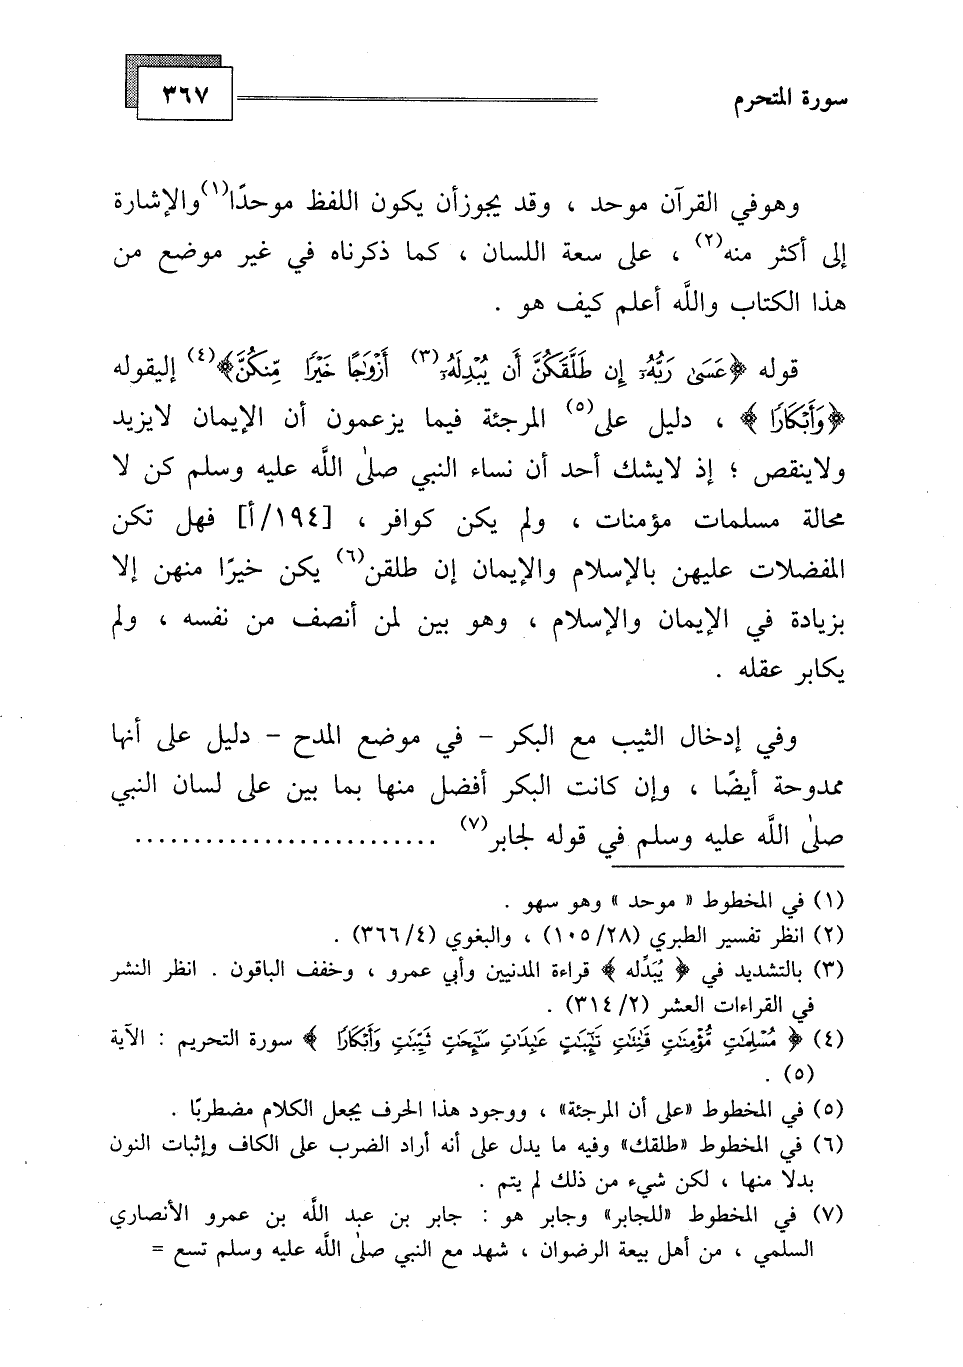 سورة المتحرم
٣٦٧
وهوفي القرآن موحد ، وقد يجوزأن يكون اللفظ موحدًا(١)والإشارة
إلى أكثر منه(٢) ، على سعة اللسان ، كما ذكرناه في غير موضع من
هذا الكتاب واللَّه أعلم كيف هو .
قوله ﴿عَسَىٰ رَبُّهُۥٓ إِن طَلَّقَكُنَّ أَن يُبْدِلَهُۥٓ(٣) أَزْوَٰجًا خَيْرًا مِّنكُنَّ﴾(٤) إليقوله
﴿وَأَبْكَارًا ﴾ ، دليل على(٥) المرجئة فيما يزعمون أن الإيمان لايزيد
ولاينقص ؛ إذ لايشك أحد أن نساء النبي صلىٰ اللَّه عليه وسلم كن لا
محالة مسلمات مؤمنات ، ولم يكن كوافر ، [١٩٤/أ] فهل تكن
المفضلات عليهن بالإسلام والإيمان إن طلقن(٦) يكن خيرًا منهن إلا
بزيادة في الإيمان والإسلام ، وهو بين لمن أنصف من نفسه ، ولم
يكابر عقله .
وفي إدخال الثيب مع البكر - في موضع المدح - دليل على أنها
ممدوحة أيضًا ، وإن كانت البكر أفضل منها بما بين على لسان النبي
صلىٰ اللَّه عليه وسلم في قوله لجابر(٧) .........................
(١) في المخطوط « موحد » وهو سهو .
(٢) انظر تفسير الطبري (١٠٥/٢٨) ، والبغوي (٣٦٦/٤) .
(٣) بالتشديد في ﴿ يُبَدِّله ﴾ قراءة المدنيين وأبي عمرو ، وخفف الباقون . انظر النشر
في القراءات العشر (٣١٤/٢) .
(٤) ﴿ مُسْلِمَٰتٍ مُّؤْمِنَٰتٍ قَٰنِتَٰتٍ تَٰٓئِبَٰتٍ عَٰبِدَٰتٍ سَٰٓئِحَٰتٍ ثَيِّبَٰتٍ وَأَبْكَارًا ﴾ سورة التحريم : الآية
(٥) .
(٥) في المخطوط «على أن المرجئة» ، ووجود هذا الحرف يجعل الكلام مضطربًا .
(٦) في المخطوط «طلقك» وفيه ما يدل على أنه أراد الضرب على الكاف وإثبات النون
بدلا منها ، لكن شيء من ذلك لم يتم .
(٧) في المخطوط «للجابر» وجابر هو : جابر بن عبد اللَّه بن عمرو الأنصاري
السلمي ، من أهل بيعة الرضوان ، شهد مع النبي صلىٰ اللَّه عليه وسلم تسع =